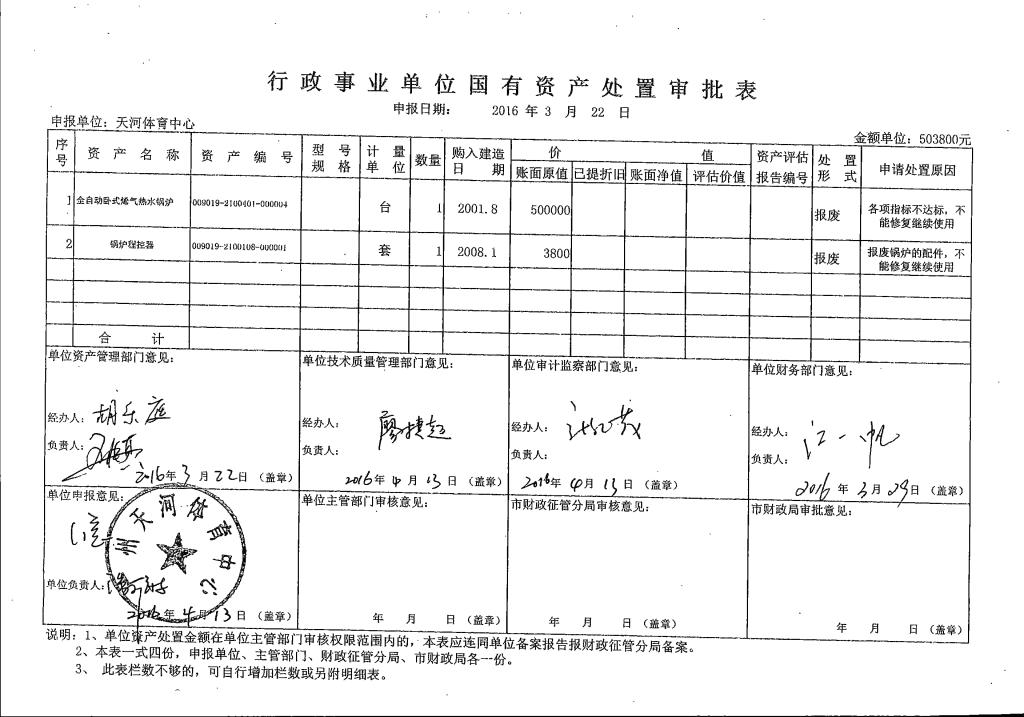 行政事业单位国有资产处置审批表
申报日期： 2016 年 3 月 22 日
申报单位：天河体育中心
金额单位：503800元
序号 资产名称 资产编号 型号规格 计量单位 数量 购入建造日期 价值 资产评估报告编号 处置形式 申请处置原因
账面原值 已提折旧 账面净值 评估价值
1 全自动卧式燃气热水锅炉 009019-2100401-000004 台 1 2001.8 500000 报废 各项指标不达标，不能修复继续使用
2 锅炉程控器 009019-2100108-000001 套 1 2008.1 3800 报废 报废锅炉的配件，不能修复继续使用
合计
单位资产管理部门意见： 单位技术质量管理部门意见： 单位审计监察部门意见： 单位财务部门意见：
经办人：胡乐庭 经办人：廖捷超 经办人： 经办人：江一帆
负责人： 负责人： 负责人： 负责人：
2016年3月22日（盖章） 2016年4月13日（盖章） 2016年4月13日（盖章） 2016年3月29日（盖章）
单位申报意见： 单位主管部门审核意见： 市财政征管分局审核意见： 市财政局审批意见：
州天河体育中心
单位负责人：
2016年4月13日（盖章） 年 月 日（盖章） 年 月 日（盖章） 年 月 日（盖章）
说明：1、单位资产处置金额在单位主管部门审核权限范围内的，本表应连同单位备案报告报财政征管分局备案。
2、本表一式四份，申报单位、主管部门、财政征管分局、市财政局各一份。
3、 此表栏数不够的，可自行增加栏数或另附明细表。